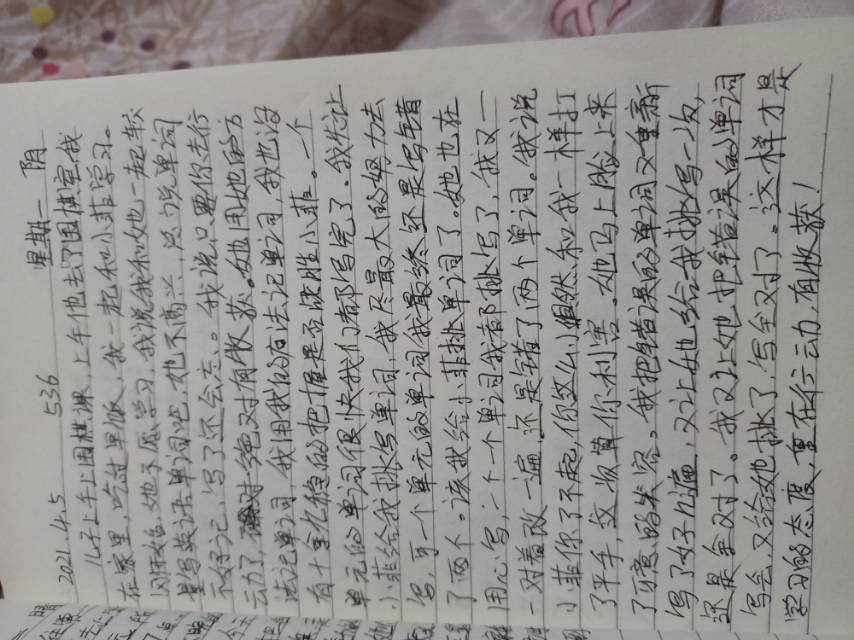 2021.4.5 536 星期一 阴
儿子上午上围棋课,上午他去了围棋室,我
在家里,吃过早饭,我一起和小菲学习。
刚开始,她不愿学习,我说我和她一起较
量写英语单词吧,她不高兴,只说单词
不好记,写了还会忘。我说只要你去行
动了,绝对有收获。她用她的方
法记单词,我用我的方法记单词,我也没
有十拿九稳的把握是否胜小菲。一个
单元的单词很快我们都写完了。我先让
小菲给我挑写单词,我尽最大的努力去
写,可一个单元的单词我最终还是写错
了两个。该我给小菲挑单词了。她也在
用心写,一个一个单词我都挑写了,我又一
一对着改一遍,还是错了两个单词。我说
小菲你了不起,你这么小竟然和我一样打
了平手,这次算你利害。她马上脸上来
了可意的笑容。我把错误的单词又重新
写了好几遍,又让她给我挑写一次,
还是全对了。我又让她把错误的单词
写会,又给她挑了,写全对了。这样才是
学习的态度,重在行动,有收获!